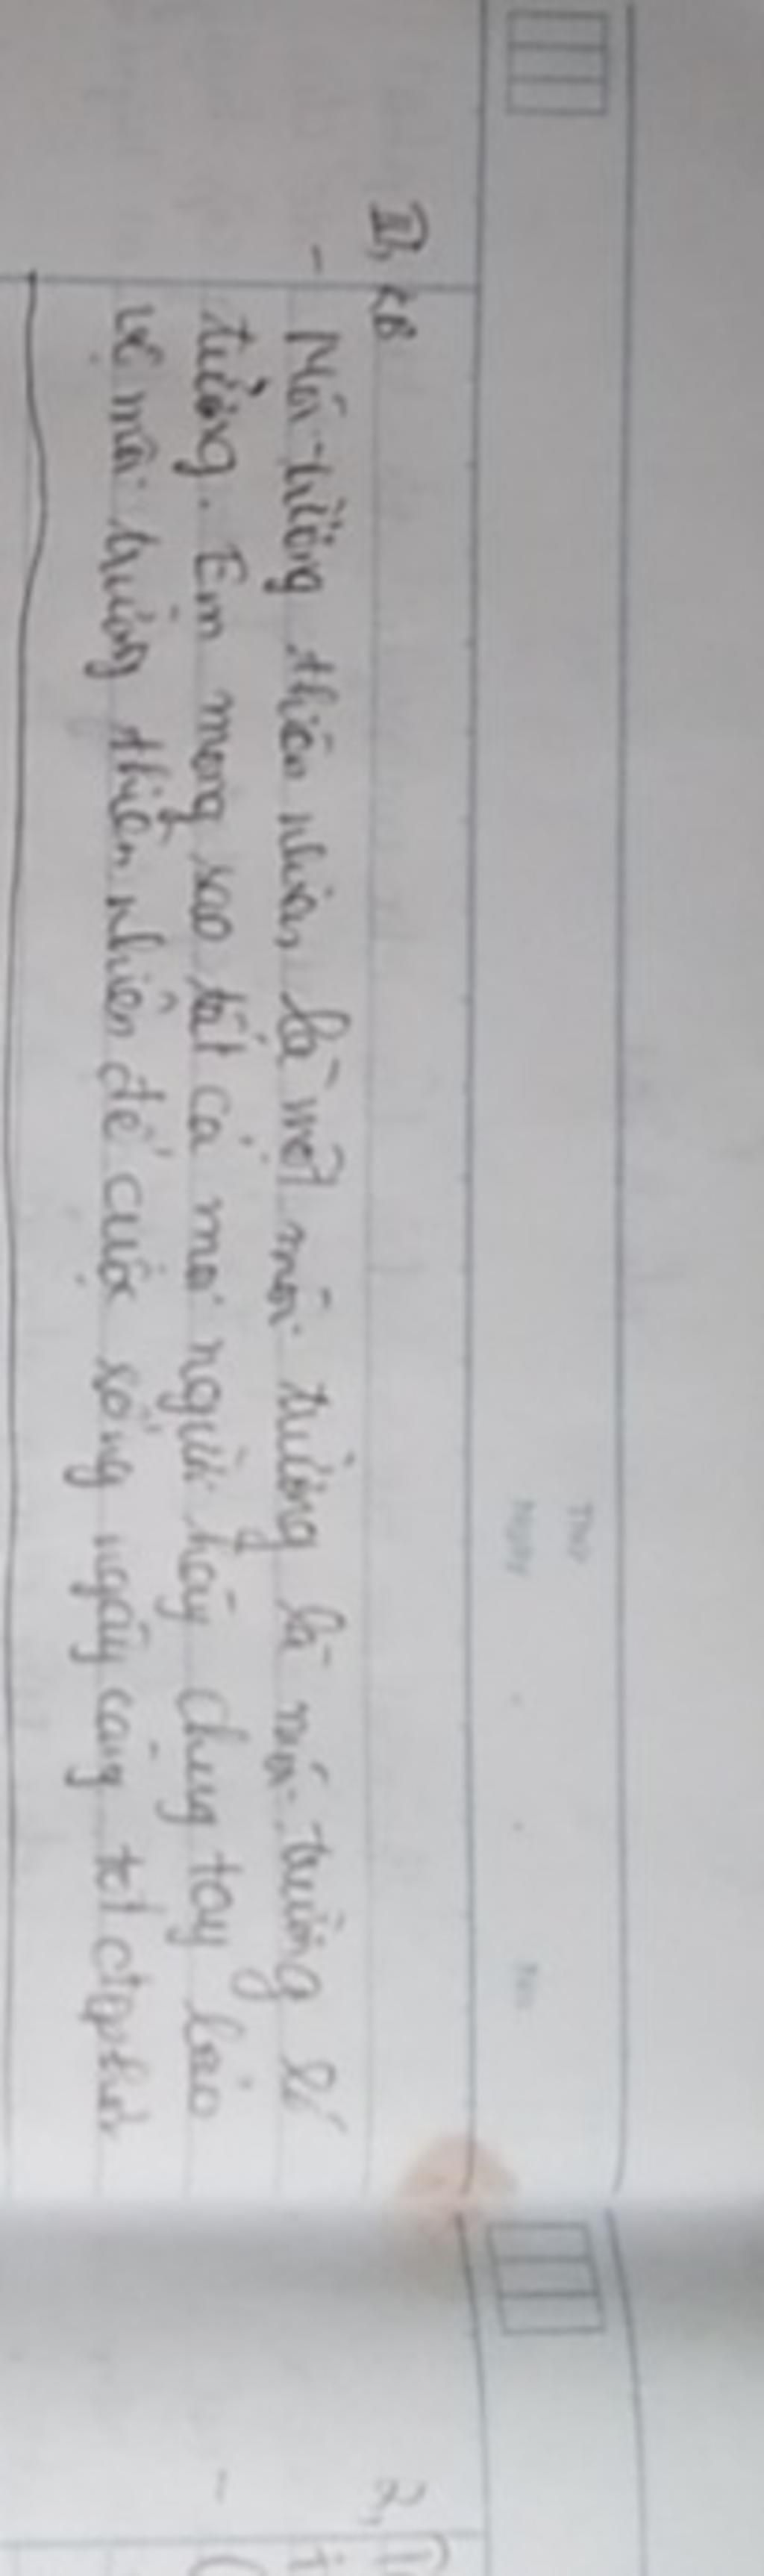 Thứ
Ngày
II, KB
- Môi trường thiên nhiên, là một môi trường là môi trường lí
tưởng. Em mong sao tất cả mọi người hãy chung tay bảo
vệ môi trường thiên nhiên để cuộc sống ngày càng tốt đẹp hơn
2,
-